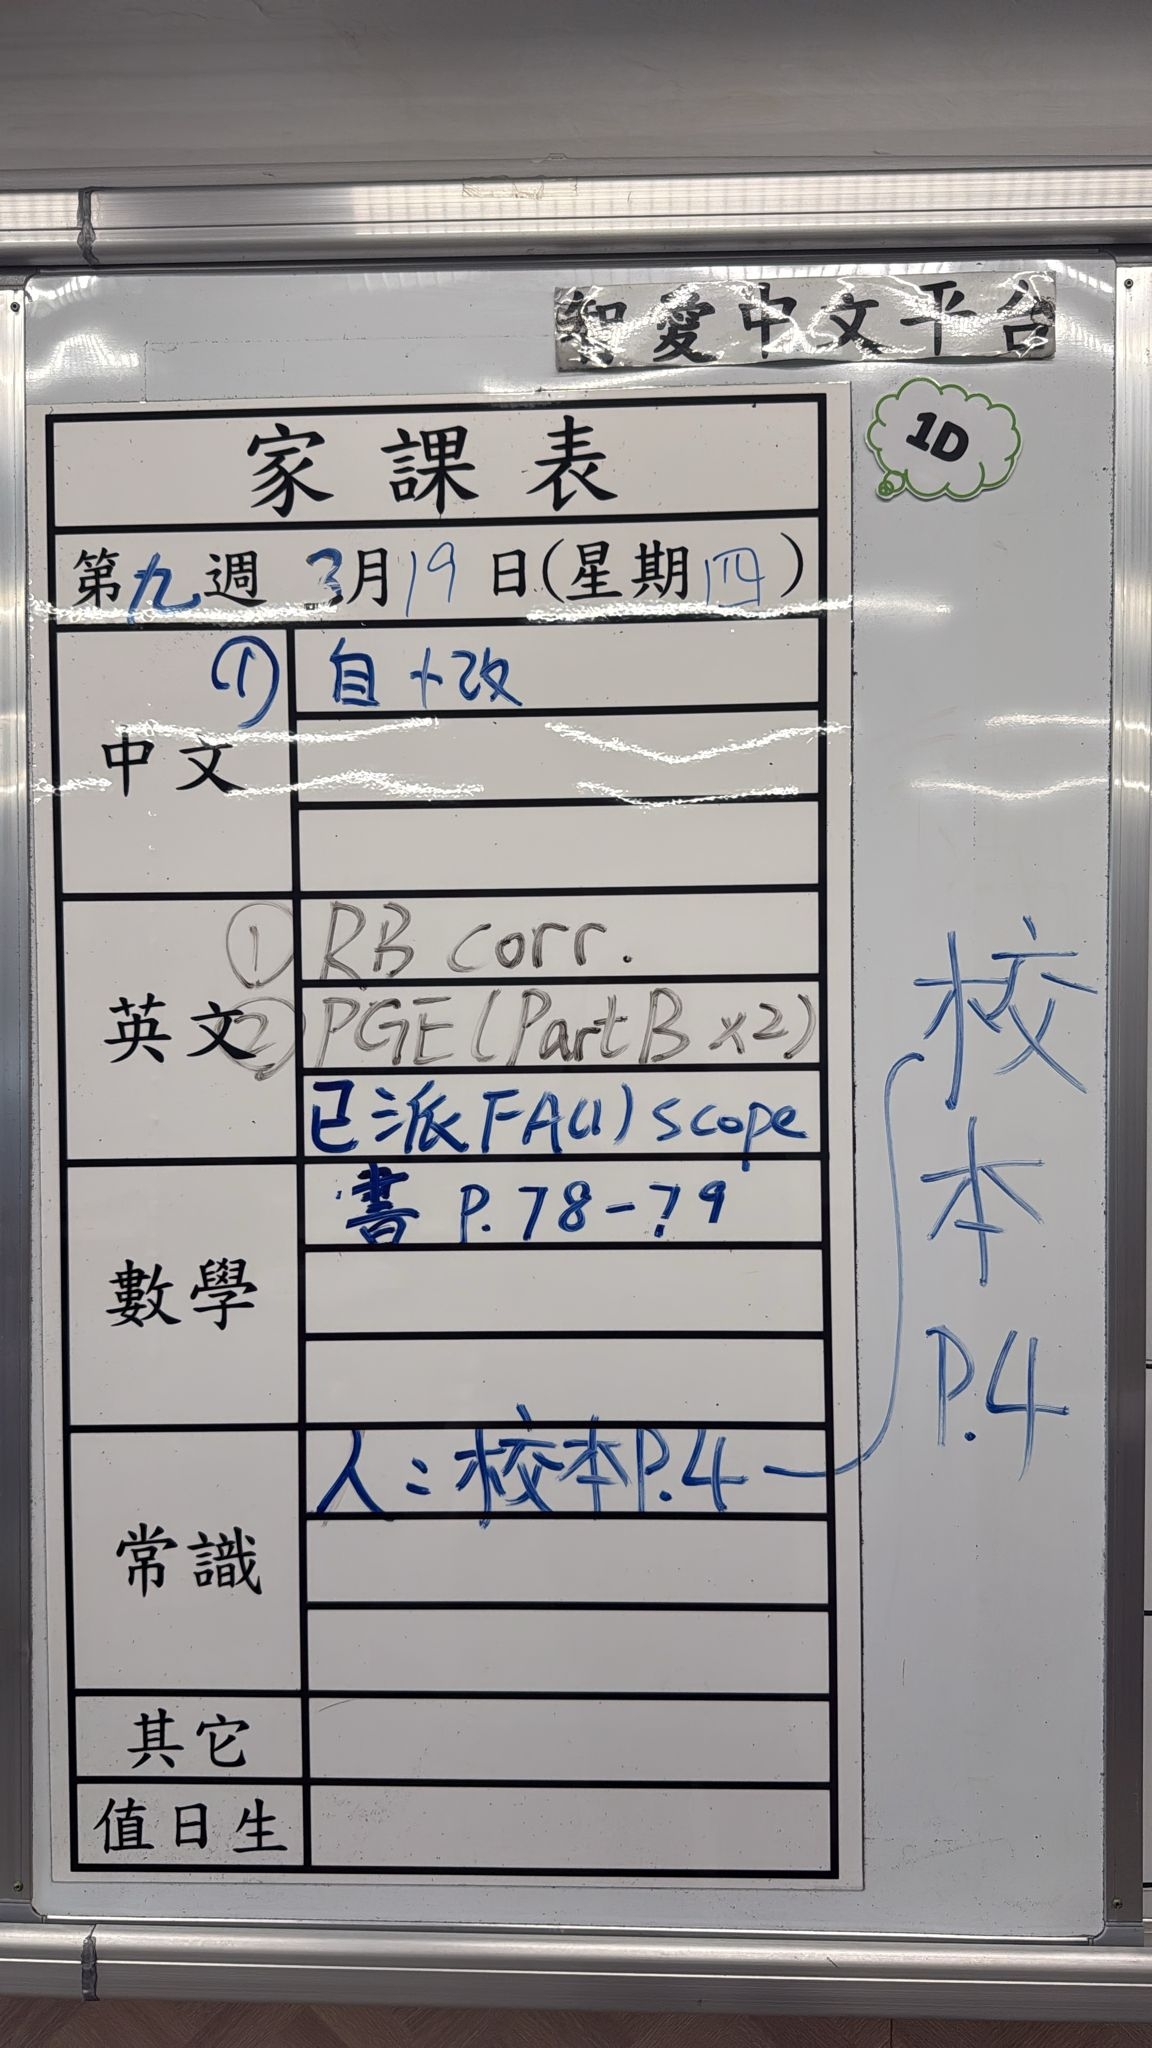 智愛中文平台
1D
家課表
第九週 3月19日(星期四)
中文
① 自+改
英文
① RB corr.
② PGE (Part B x2)
已派 FA(1) scope
數學
書 P.78-79
常識
人:校本P.4
校本 P.4
其它
值日生